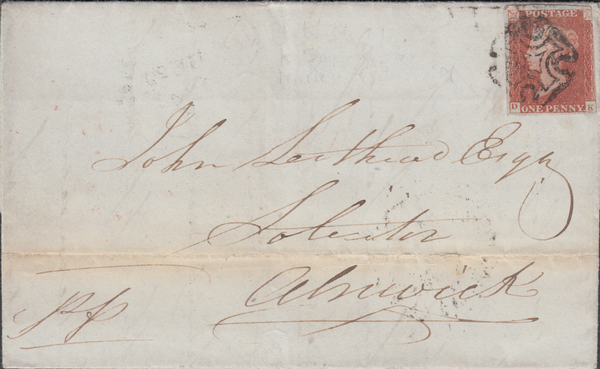 POSTAGE
D ONE PENNY K
John Leithead Esqr
Solicitor
Alnwick
PP